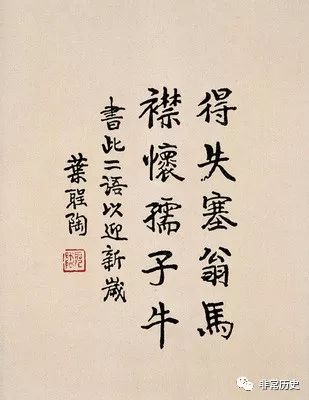 得失塞翁馬
襟懷孺子牛
書此二语以迎新歲
葉聖陶
非常历史